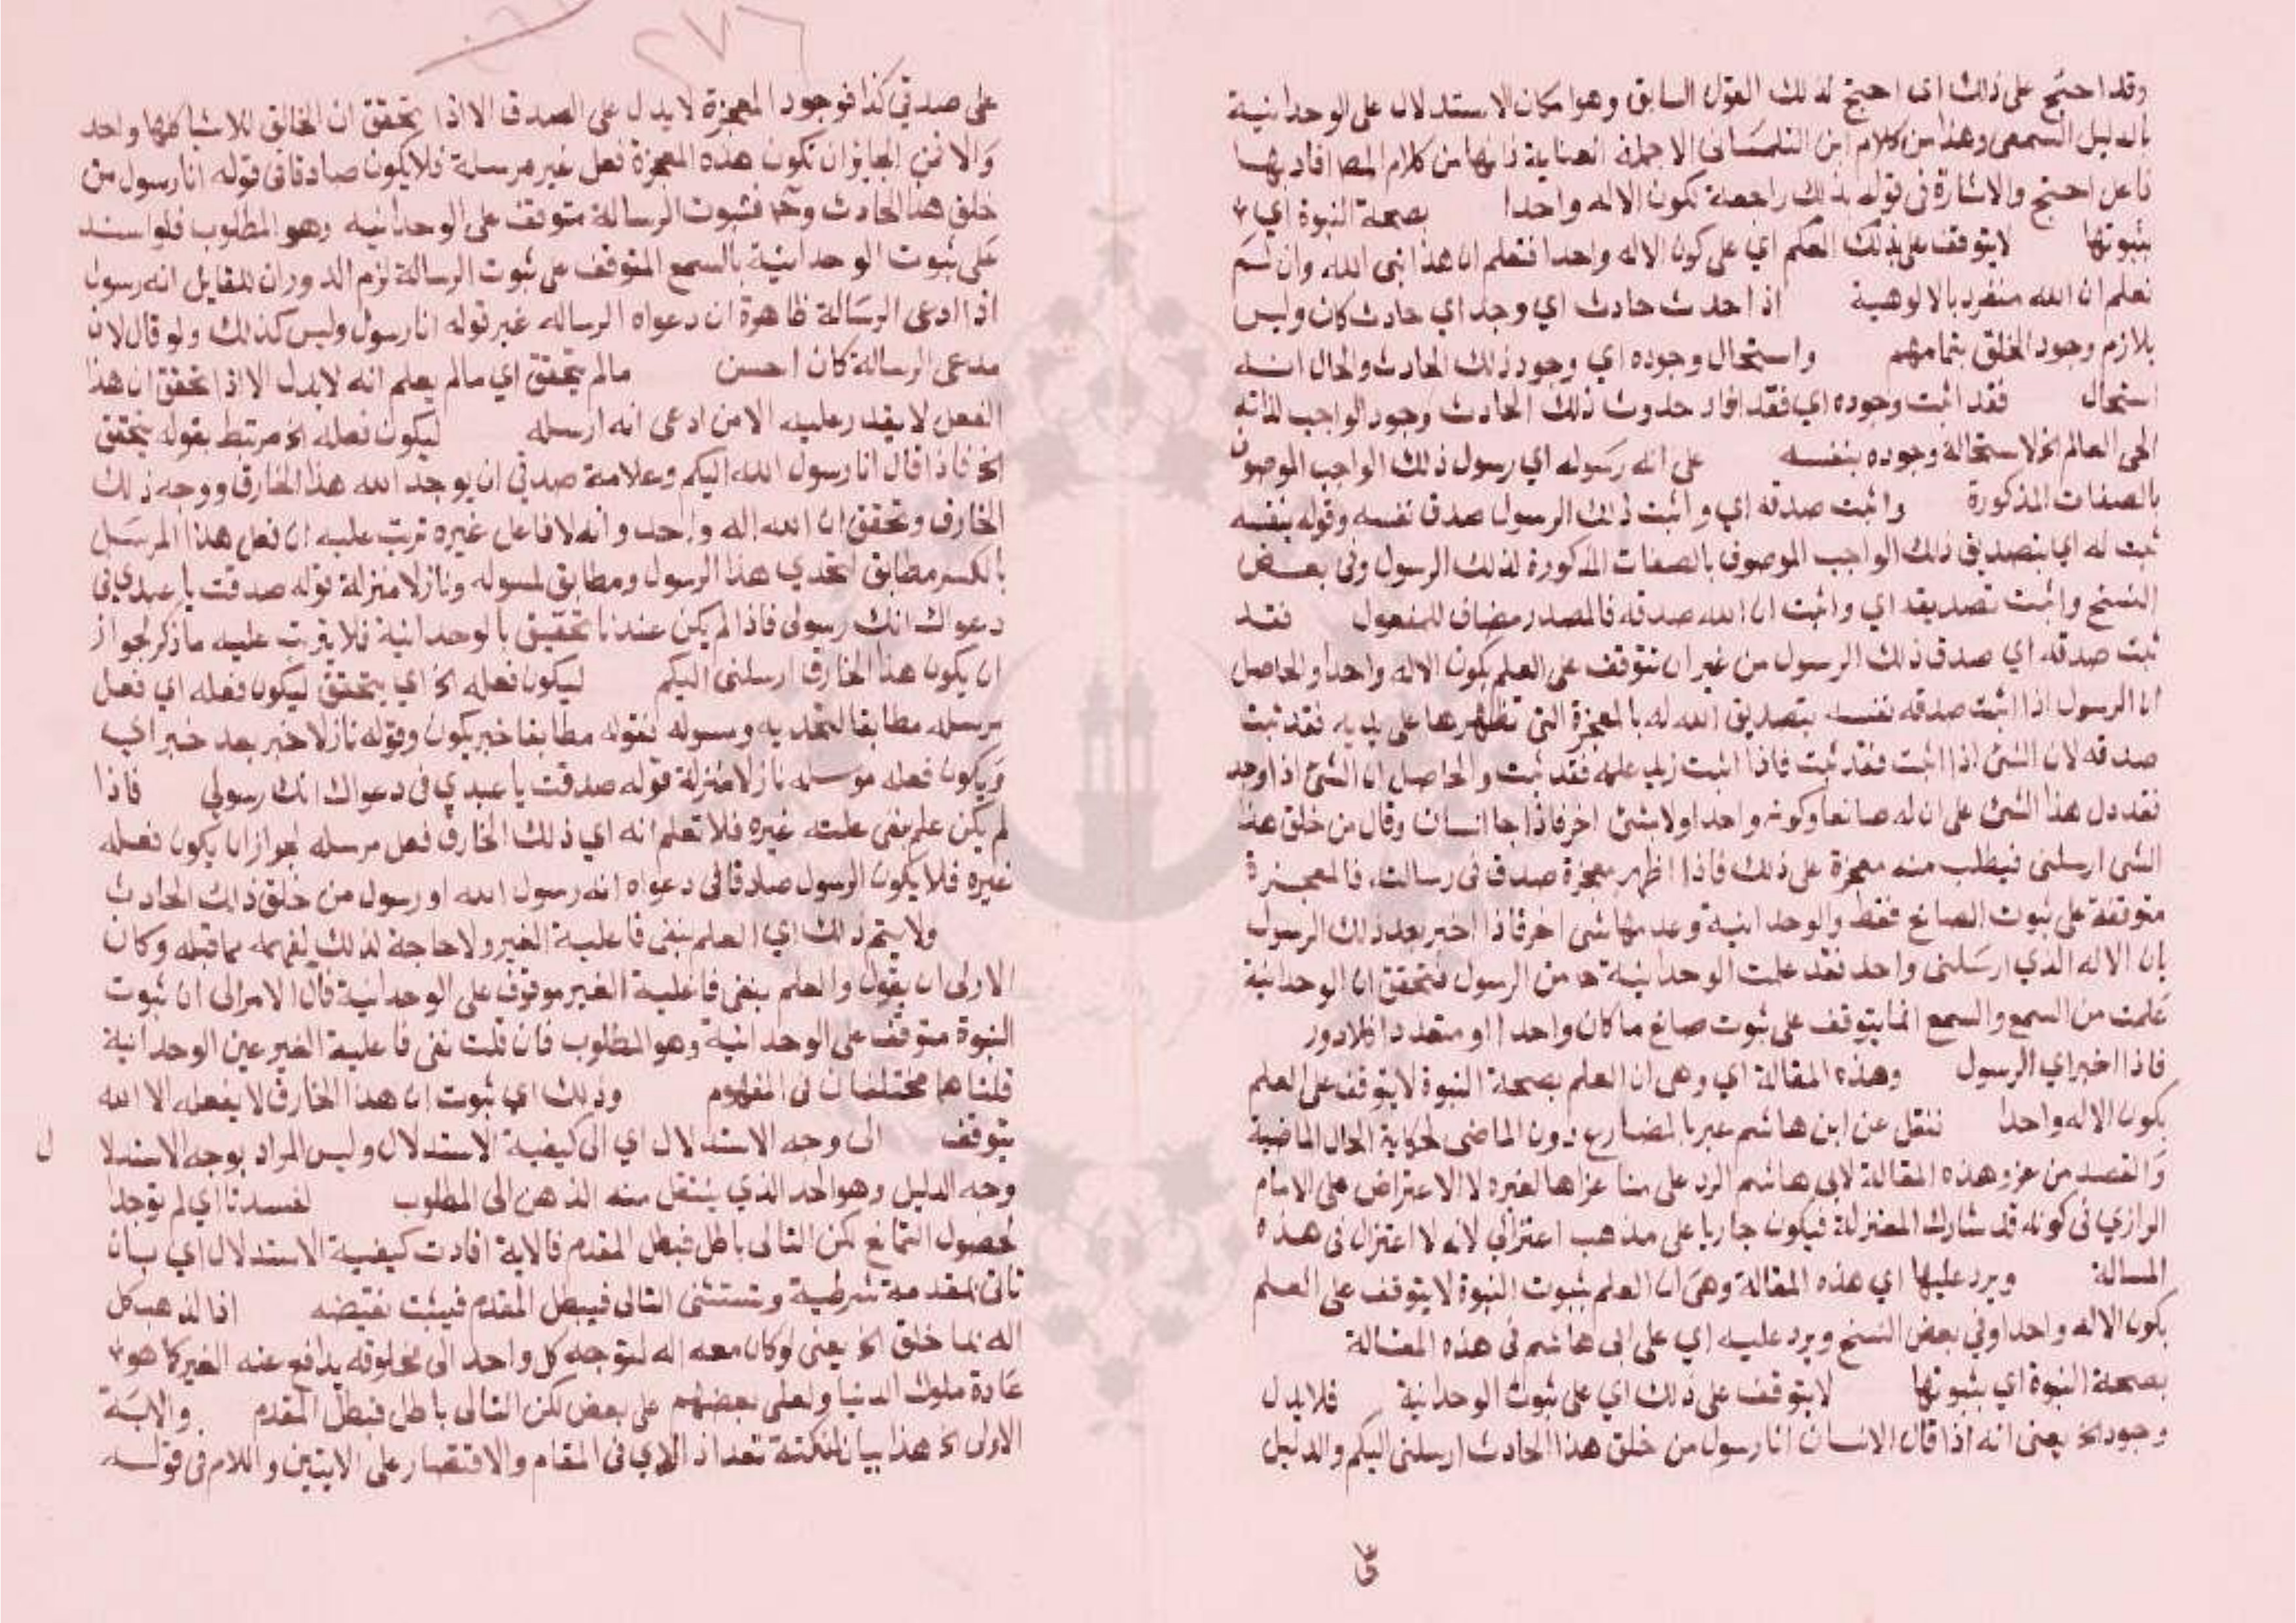 وقد احتج على ذلك اي احتج لذلك القول السابق وهو امكان الاستدلال على الوحدانية
بالدليل السمعي وهذا من كلام ابن التلمساني الا جملة العناية فانها من كلام المص افاد بها
فاعل احتج والاشارة في قوله بذلك راجعة لكون الاله واحدا بصحة النبوة اي
بثبوتها لا يتوقف على ذلك العلم اي على كون الاله واحدا فتعلم ان هذا نبي الله وان لم
نعلم ان الله منفرد بالالوهية اذا حدث حادث اي وجد اي حادث كان وليس
بلازم وجود الخلق بتمامهم واستحال وجوده اي وجود ذلك الحادث والحال انه
استحال فقد اثبت وجوده اي فقد افاد حدوث ذلك الحادث وجود الواجب لذاته
الحي العالم الخ لاستحالة وجوده بنفسه على انه رسوله اي رسول ذلك الواجب الموصوف
بالصفات المذكورة واثبت صدقه اي واثبت ذلك الرسول صدق نفسه وقوله بنفسه
ثبت له اي بتصديق ذلك الواجب الموصوف بالصفات المذكورة لذلك الرسول وفي بعض
النسخ واثبت تصديقه اي واثبت ان الله صدقه فالمصدر مضاف للمفعول فقد
ثبت صدقه اي صدق ذلك الرسول من غير ان نتوقف على العلم بكون الاله واحدا والحاصل
ان الرسول اذا اثبت صدقه نفسه بتصديق الله له بالمعجزة التي تظهرها على يديه فقد ثبت
صدقه لان الشئ اذا اثبت فقد ثبت فاذا اثبت زيد علمه فقد ثبت والحاصل ان الشئ اذا وجد
فقد دل هذا الشئ على ان له صانعا وكونه واحدا ولا شئ اخر فاذا جا انسان وقال من خلق هذا
الشى ارسلنى فيطلب منه معجزة على ذلك فاذا اظهر معجزة صدق فى رسالته فالمعجزة
متوقفة على ثبوت الصانع فقط والوحدانية وعدمها شى اخر فاذا اخبر بعد ذلك الرسول
بان الاله الذي ارسلنى واحد فقد علمت الوحدانية ح من الرسول فتحقق ان الوحدانية
علمت من السمع والسمع انما يتوقف على ثبوت صانع ما كان واحدا او متعددا فلا دور
فاذا اخبر اي الرسول وهذه المقالة اي وهى ان العلم بصحة النبوة لا يتوقف على العلم
بكون الاله واحدا ننقل عن ابن هاشم عبر بالمضارع دون الماضى لحكاية الحال الماضية
والقصد من عزو هذه المقالة لابى هاشم الرد على من عزاها لغيره لا الاعتراض على الامام
الرازي فى كونه قد شارك المعتزلة فيكون جاريا على مذهب اعتزالي لانه لا اعتزال فى هذه
المسالة ويرد عليها اي هذه المقالة وهى ان العلم بثبوت النبوة لا يتوقف على العلم
بكون الاله واحدا وفي بعض النسخ ويرد عليه اي على ابى هاشم فى هذه المقالة
بصحة النبوة اي بثبوتها لا يتوقف على ذلك اي على ثبوت الوحدانية فلا يدل
وجود الخ يعنى انه اذا قال الانسان انا رسول من خلق هذا الحادث ارسلنى اليكم والدليل
على
٢٧٦
على صدقى كذا فوجود المعجزة لا يدل على الصدق الا اذا تحقق ان الخالق للاشيا كلها واحد
والا فمن الجايز ان تكون هذه المعجزة فعل غير مرسله فلا يكون صادقا فى قوله انا رسول من
خلق هذا الحادث وح فثبوت الرسالة متوقف على الوحدانيه وهو المطلوب فلو استند
على ثبوت الوحدانية بالسمع المتوقف على ثبوت الرسالة لزم الدور ان للقايل انه رسول
اذا ادعى الرسالة ظاهرة ان دعواه الرساله غير قوله انا رسول وليس كذلك ولو قال لان
مدعى الرسالة كان احسن مالم يتحقق اي مالم يعلم انه لا يدل الا اذا تحقق ان هذا
الفعل لا يقدر عليه الا من ادعى انه ارسله ليكون فعله الخ مرتبط بقوله يتحقق
الخ فاذا قال انا رسول الله اليكم وعلامة صدقي ان يوجد الله هذا الخارق ووجه ذلك
الخارق وتحقق ان الله اله واحد وانه لا فاعل غيره ترتب عليه ان فعل هذا المرسل
بالكسر مطابق لتحدي هذا الرسول ومطابق لمسوله ونازلا منزلة قوله صدقت يا عبدي فى
دعواك انك رسولى فاذا لم يكن عندنا تحقيق بالوحدانية فلا يترتب عليه ما ذكر لجواز
ان يكون هذا الخارق ارسلنى اليكم ليكون فعله الخ اي يتحقق ليكون فعله اي فعل
مرسله مطابقا لتحديه ومسوله فقوله مطابقا خبر يكون وقوله نازلا خبر بعد خبر اي
ويكون فعله موسله نازلا منزلة قوله صدقت يا عبدي فى دعواك انك رسولي فاذا
لم يكن علم بنفى علته غيره فلا تعلم انه اي ذلك الخارق فعل مرسله لجواز ان يكون فعله
غيره فلا يكون الرسول صادقا فى دعواه انه رسول الله او رسول من خلق ذلك الحادث
ولا يتم ذلك اي العلم بنفى فاعلية الغير ولا حاجة لذلك لفهمه مما قبله وكان
الاولى ان يقول والعلم بنفى فاعلية الغير موقوف على الوحدانية فآل الامر الى ان ثبوت
النبوة متوقف على الوحدانية وهو المطلوب فان قلت نفى فاعلية الغير عين الوحدانية
قلنا هما مختلفان فى المفهوم وذلك اي ثبوت ان هذا الخارق لا يفعله الا الله
يتوقف الى وجه الاستدلال اي الى كيفية الاستدلال وليس المراد بوجه الاستدلا ل
وجه الدليل وهو الحد الذي ينتقل منه الذهن الى المطلوب لفسدتا اي لم توجدا
لحصول التمانع لكن التالى باطل فبطل المقدم فالاية افادت كيفية الاستدلال اي بان
تاتى بمقدمة شرطية وتستثنى التالى فيبطل المقدم فيثبت نقيضه اذا لذهب كل
اله بما خلق الخ يعنى لو كان معه اله لتوجه كل واحد الى مخلوقه يدافع عنه الغير كما هو
عادة ملوك الدنيا ولعلى بعضهم على بعض لكن التالى باطل فبطل المقدم والاية
الاولى الخ هذا بيان لنكتة تعداد الاي فى المقام والاقتصار على الايتين واللام فى قوله